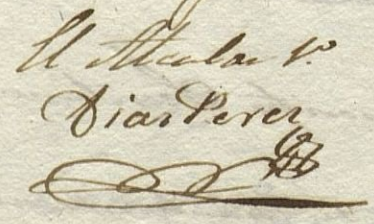 El Alcalde 1º
Dias Perez